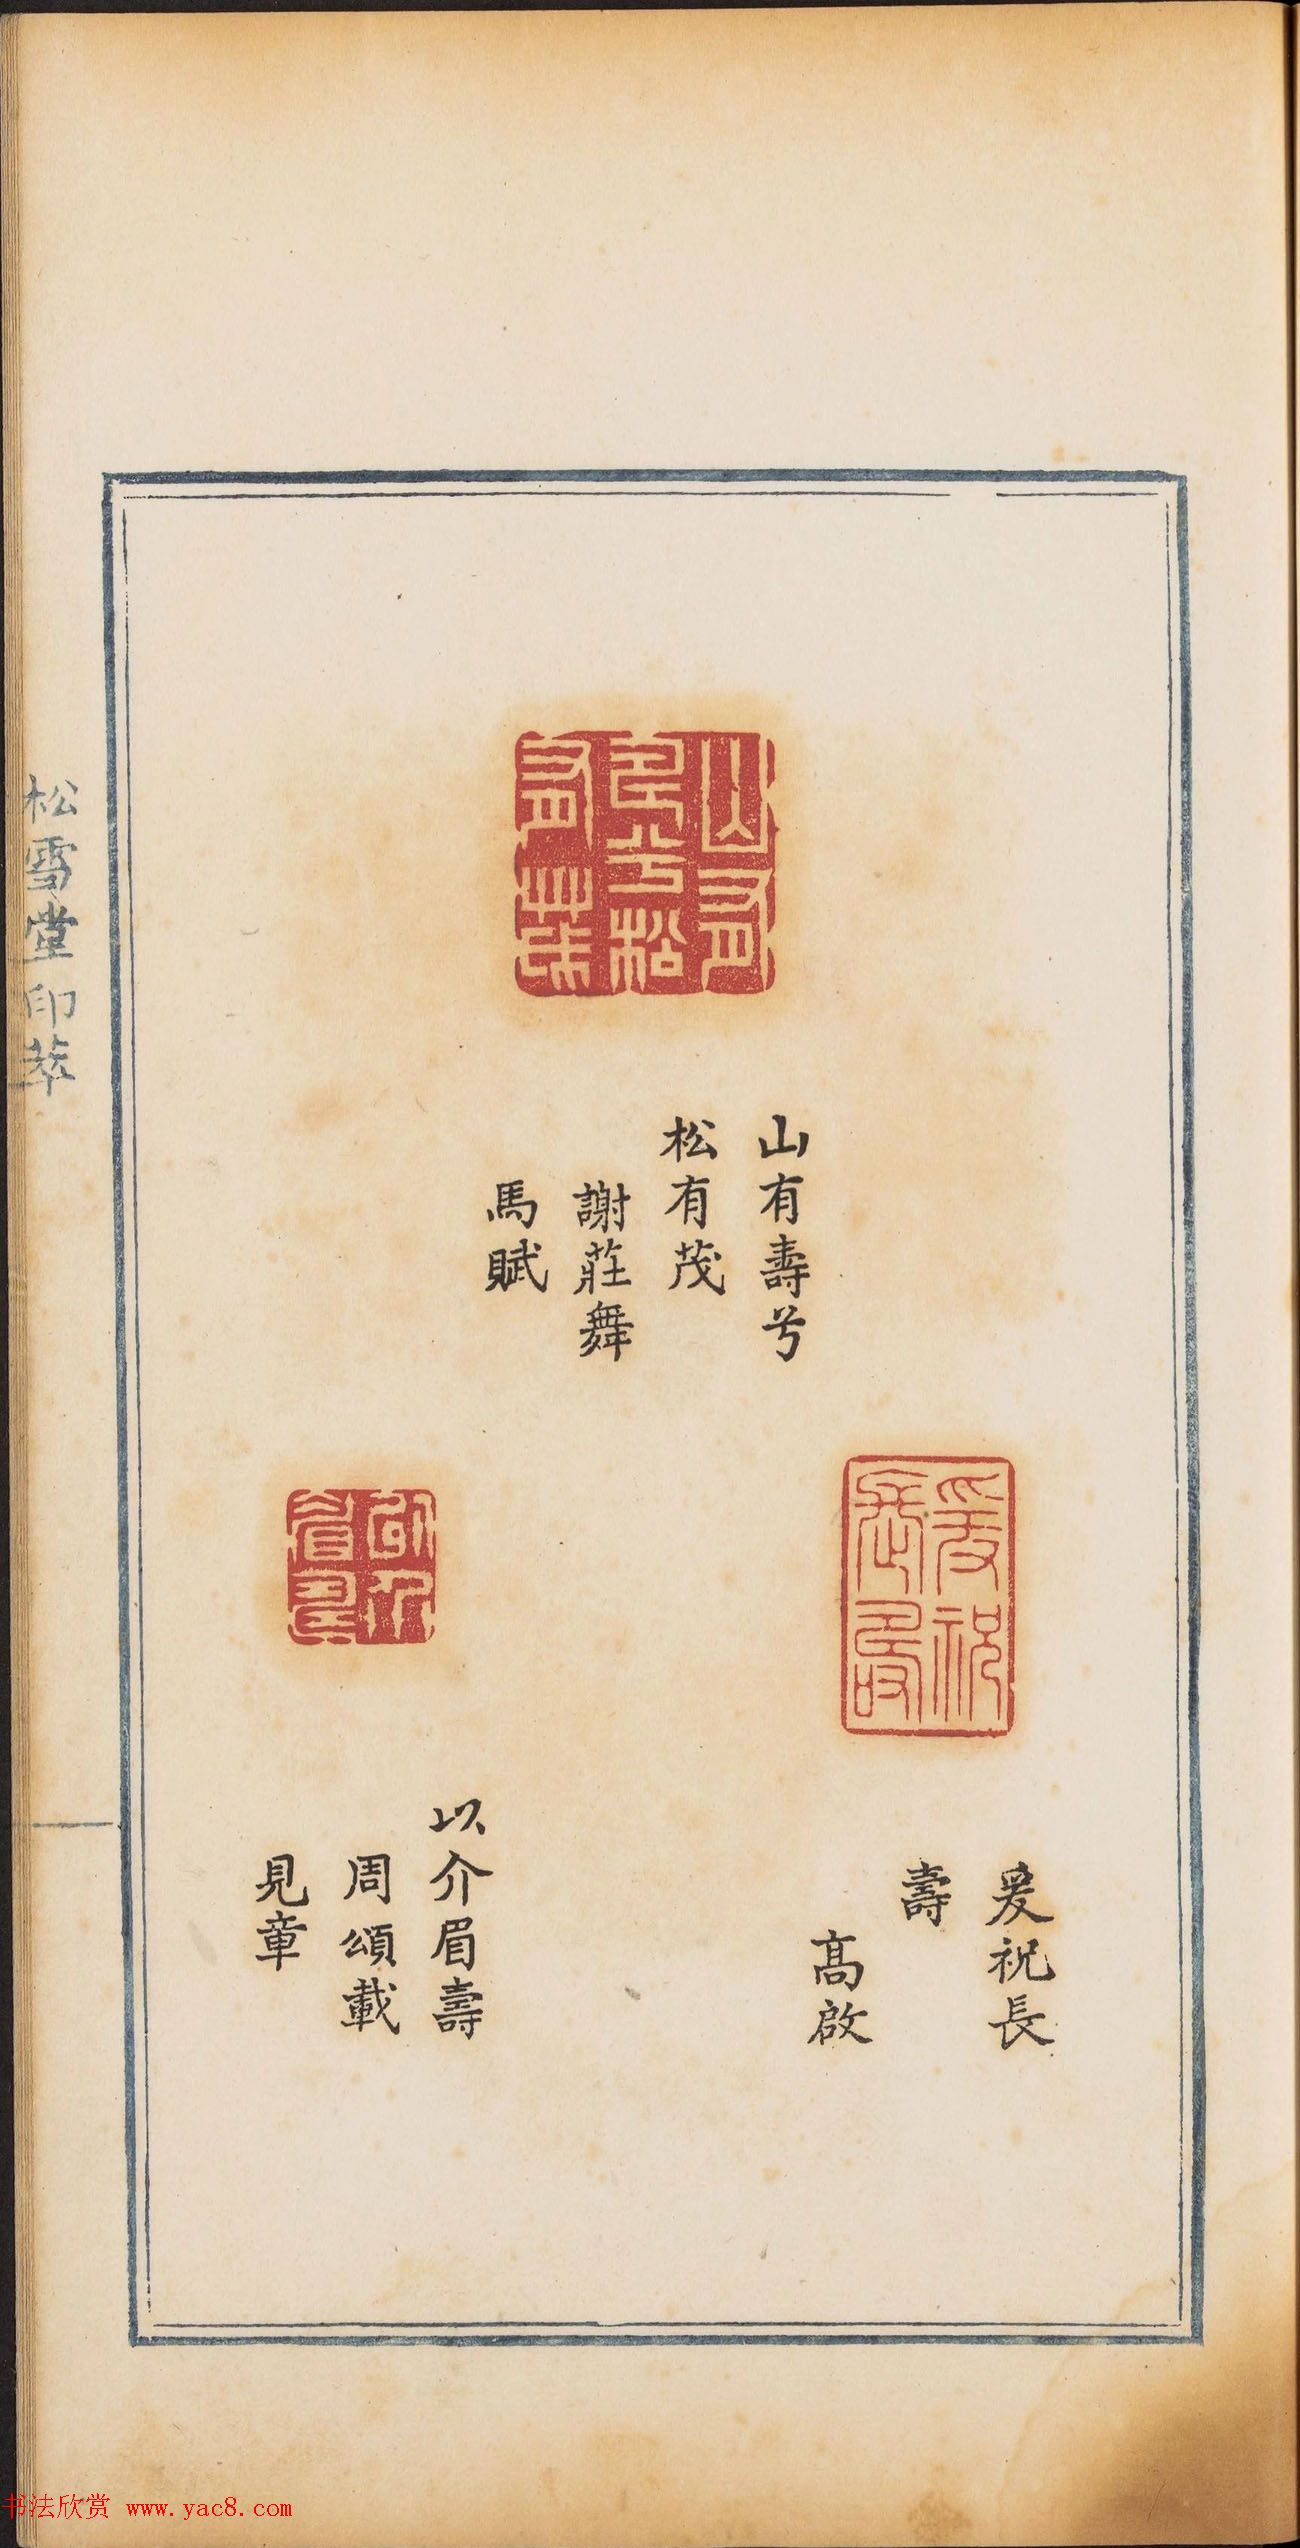 山有壽兮
松有茂
謝莊舞
馬賦
爰祝長
壽
高啟
以介眉壽
周頌載
見章
松雪堂印萃
书法欣赏 www.yac8.com